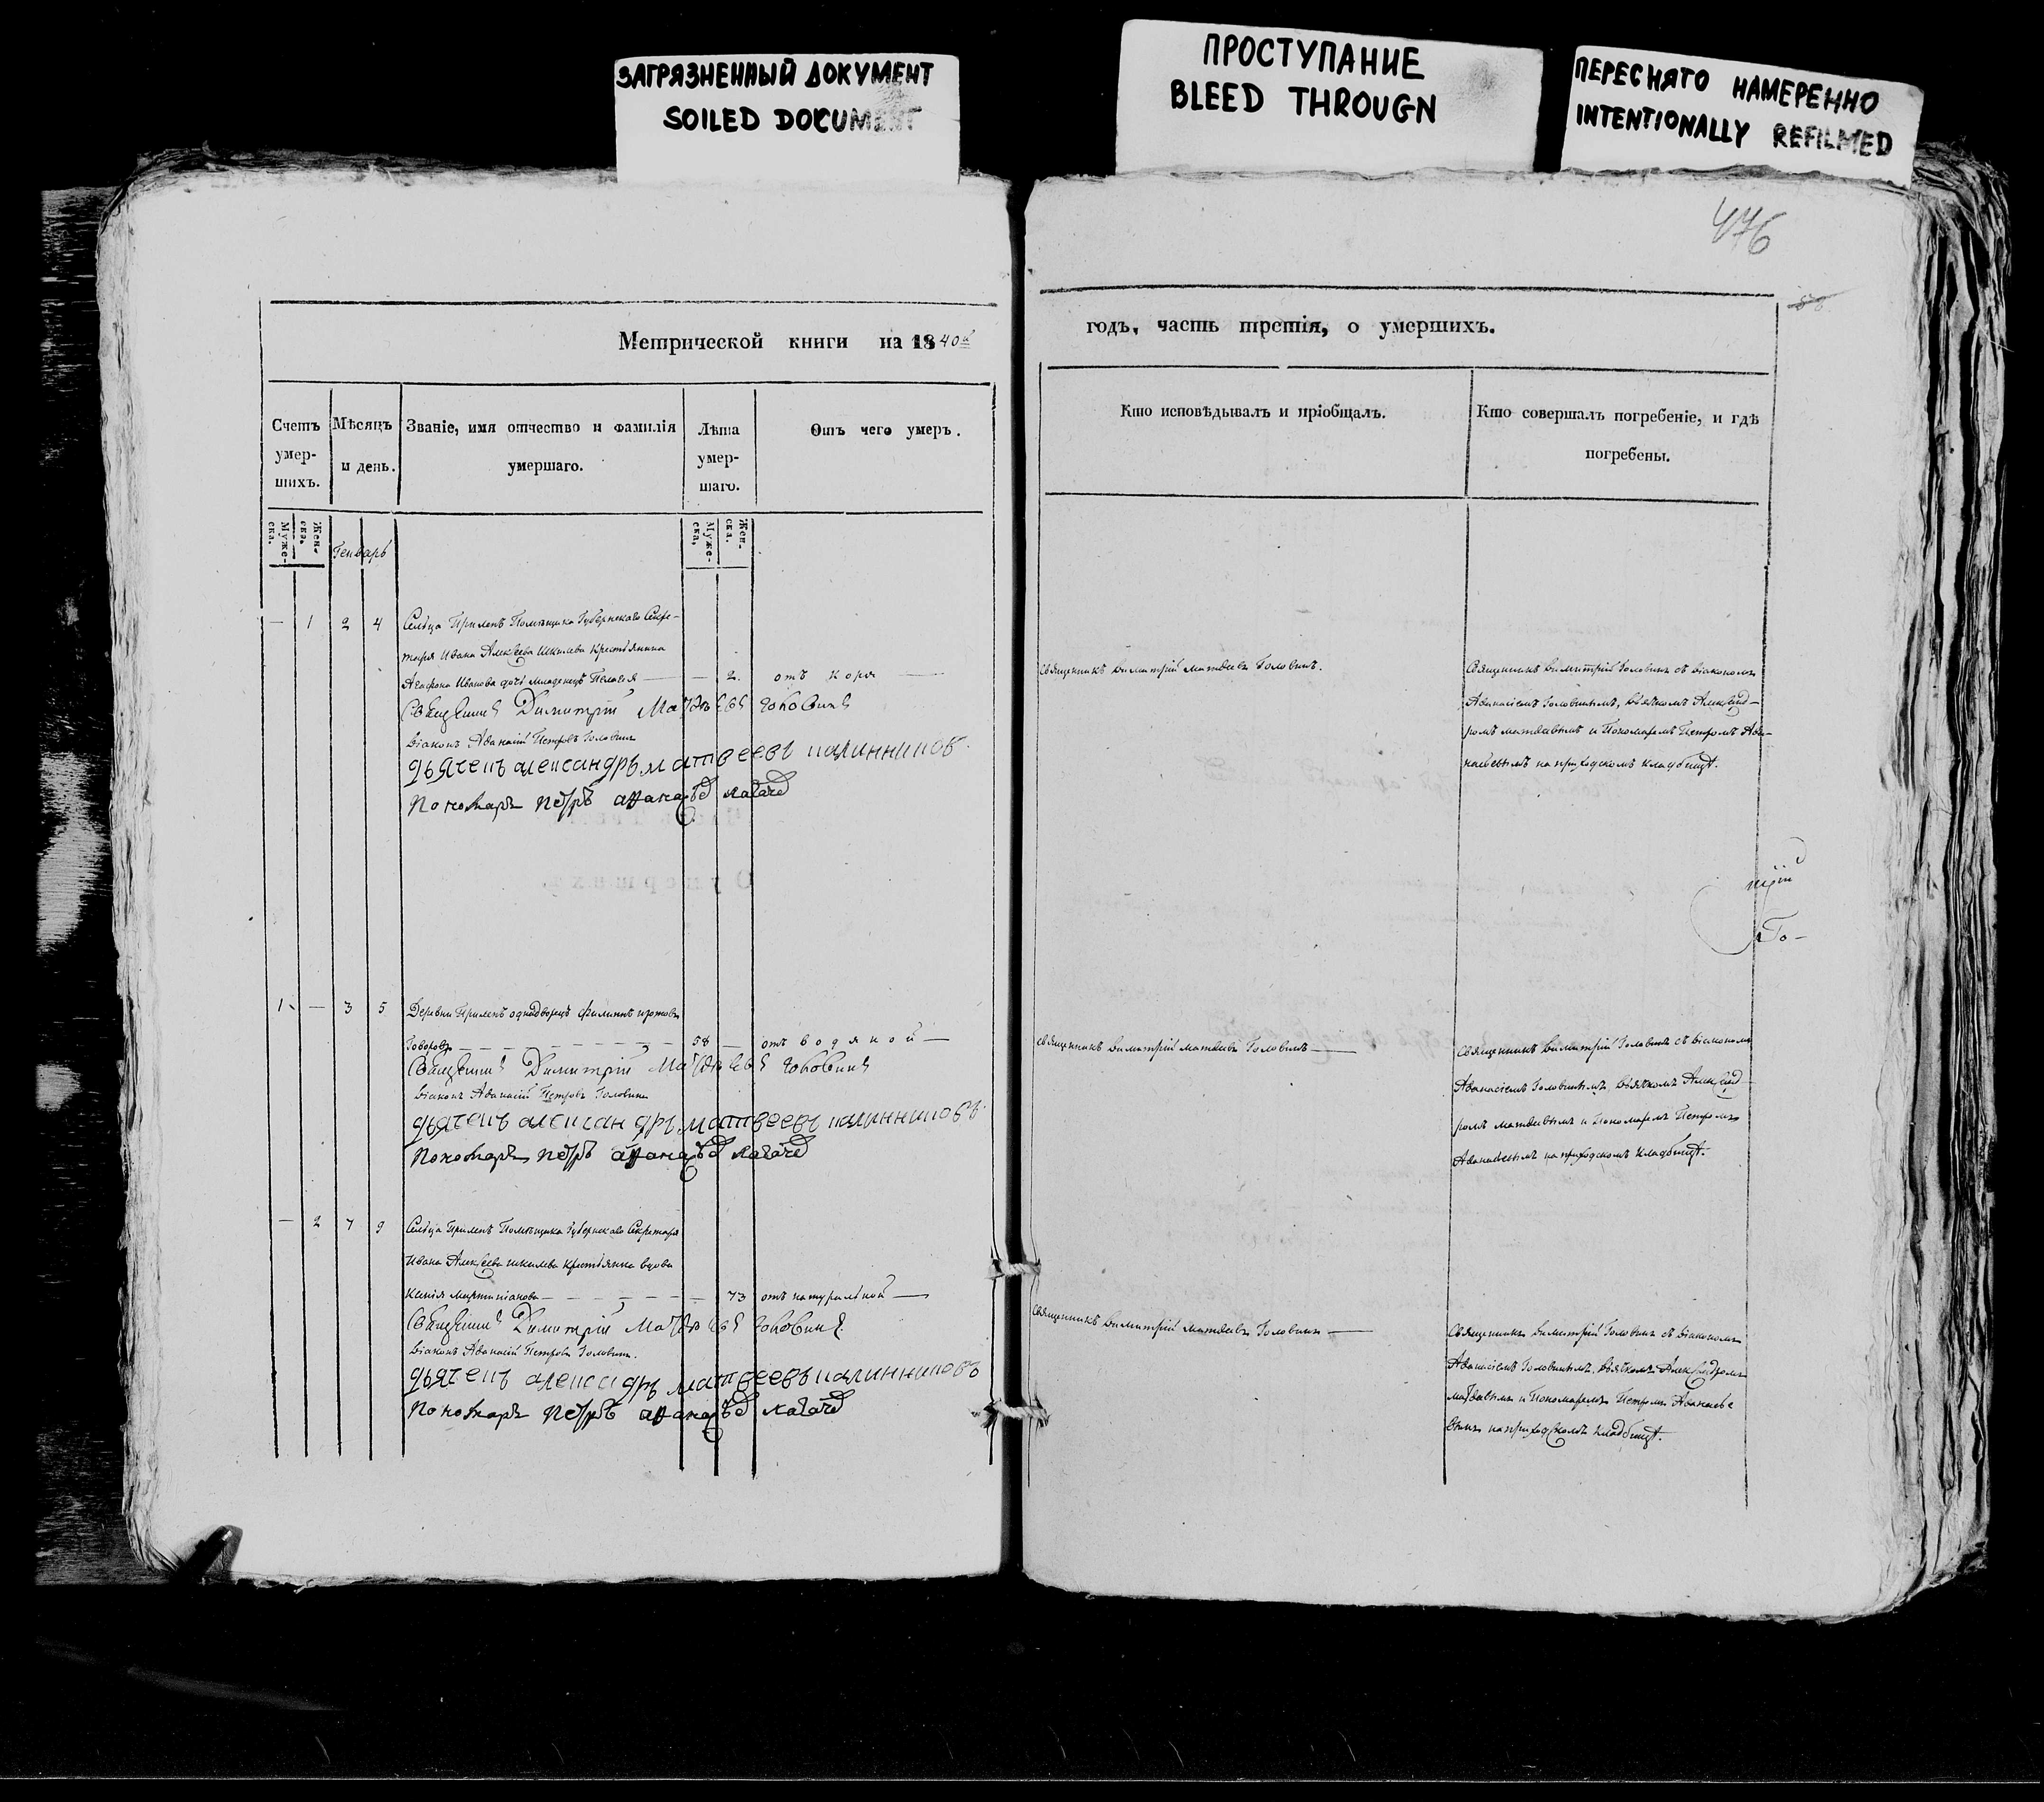 ЗАГРЯЗНЕННЫЙ ДОКУМЕНТ
SOILED DOCUMENT
ПРОСТУПАНИЕ
BLEED THROUGN
ПЕРЕСНЯТО НАМЕРЕННО
INTENTIONALLY REFILMED
476
Метрической книги на 1840й
Счетъ умер-шихъ.
Мѣсяцъ и день.
Званіе, имя отчество и фамилія
умершаго.
Лѣта умер-шаго.
Отъ чего умеръ.
Муже-ска.
Жен-ска.
Генварь
Муже-ска.
Жен-ска.
— 1 2 4 Сельца Прилепъ Помѣщика Губернскаго Секре-
таря Ивана Алексѣева Крестьянина
Агафона Иванова дочь младенецъ Пелагея — — 2. отъ коря —
Священникъ Димитрій Матвѣевъ Головинъ
Діаконъ Аѳанасій Петровъ Головинъ
дьячекъ александръ матвеевъ калинниковъ
Пономарь петръ
1 — 3 5 Деревни Прилепъ однодворецъ
Говоровъ — 58 — отъ водяной —
Священникъ Димитрій Матвѣевъ Головинъ
Діаконъ Аѳанасій Петровъ Головинъ
дьячекъ александръ матвеевъ калинниковъ
Пономарь петръ
— 2 7 9 Сельца Прилепъ Помѣщика Губернскаго Секретаря
Ивана Алексѣева крестьянка вдова
Ксенія Мартиніанова — — 73 отъ натуральной —
Священникъ Димитрій Матвѣевъ Головинъ
Діаконъ Аѳанасій Петровъ Головинъ.
дьячекъ александръ матвеевъ калинниковъ
Пономарь петръ
годъ, часть третія, о умершихъ.
Кто исповѣдывалъ и пріобщалъ.
Кто совершалъ погребеніе, и гдѣ
погребены.
Священникъ Димитрій Матвѣевъ Головинъ.
Священникъ Димитрій Головинъ съ діакономъ
Аѳанасіемъ Головинымъ, дьячкомъ Александ-
ромъ Матвѣевымъ и Пономаремъ Петромъ Аѳа-
насьевымъ на приходскомъ кладбищѣ.
Го-
Священникъ Димитрій Матвѣевъ Головинъ —
Священникъ Димитрій Головинъ съ діакономъ
Аѳанасіемъ Головинымъ дьячкомъ Александ-
ромъ Матвѣевымъ и Пономаремъ Петромъ
Аѳанасьевымъ на приходскомъ кладбищѣ.
Священникъ Димитрій Матвѣевъ Головинъ —
Священникъ Димитрій Головинъ съ діакономъ
Аѳанасіемъ Головинымъ, дьячкомъ Александромъ
Матвѣевымъ и Пономаремъ Петромъ Аѳанасье
вымъ на приходскомъ кладбищѣ.